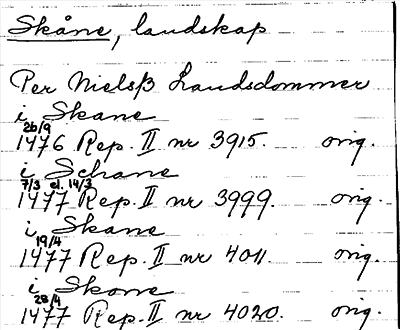 Skåne, landskap
Per Nielsß Landsdommer
i Skane
26/9
1476 Rep. II nr 3915. orig.
i Schane
7/3 el. 14/3
1477 Rep. II nr 3999. orig.
i Skane
19/4
1477 Rep. II nr 4011. orig.
i Skone
28/4
1477 Rep. II nr 4020. orig.